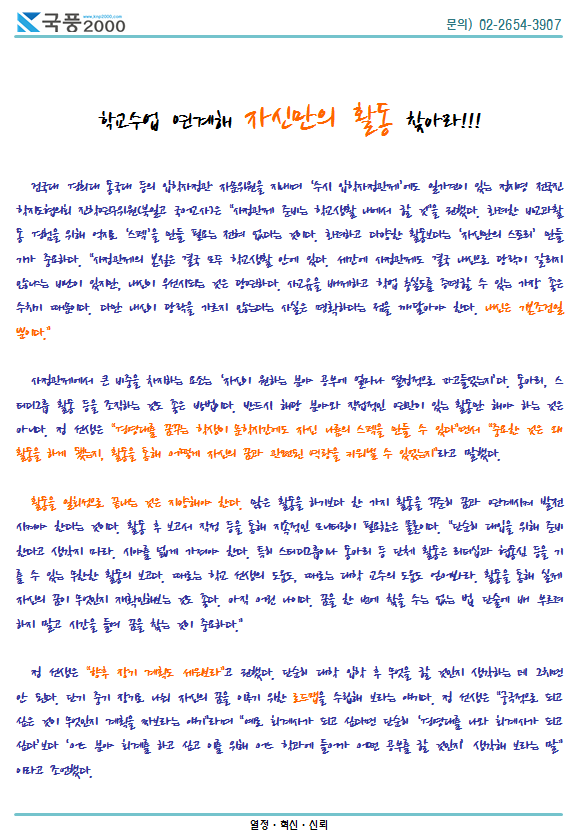 국풍2000
www.kop2000.com
문의) 02-2654-3907
학교수업 연계해 자신만의 활동 찾아라!!!
건국대 경희대 동국대 등의 입학사정관 자문위원을 지내며 '수시 입학사정관제'에도 일가견이 있는 정지영 전국진
학지도협의회 진학연구위원(부일고 국어교사)은 "사정관제 준비는 학교생활 내에서 할 것"을 권했다. 화려한 비교과활
동 경험을 위해 억지로 '스펙'을 만들 필요는 전혀 없다는 것이다. 화려하고 다양한 활동보다는 '자신만의 스토리' 만들
기가 중요하다. "사정관제의 본질은 결국 모두 학교생활 안에 있다. 세간에 사정관제도 결국 내신으로 당락이 갈리지
않냐는 비판이 있지만, 내신이 우선시되는 것은 당연하다. 사고력을 배제하고 학업 충실도를 증명할 수 있는 가장 좋은
수치기 때문이다. 다만 내신이 당락을 가르지 않는다는 사실은 명확하다는 점을 깨달아야 한다. 내신은 기본조건일
뿐이다."
사정관제에서 큰 비중을 차지하는 요소는 '자신이 원하는 분야 공부에 얼마나 열정적으로 파고들었는지'다. 동아리, 스
터디그룹 활동 등을 조직하는 것도 좋은 방법이다. 반드시 해당 분야와 직접적인 연관이 있는 활동만 해야 하는 것은
아니다. 정 선생은 "경영대를 꿈꾸는 학생이 문학시간에도 자신 나름의 스펙을 만들 수 있다"면서 "중요한 것은 왜
활동을 하게 됐는지, 활동을 통해 어떻게 자신의 꿈과 관련된 역량을 키워낼 수 있었는지"라고 말했다.
활동을 일회성으로 끝내는 것은 지양해야 한다. 많은 활동을 하기보다 한 가지 활동을 꾸준히 꿈과 연계시켜 발전
시켜야 한다는 것이다. 활동 후 보고서 작성 등을 통해 지속적인 모니터링이 필요함은 물론이다. "단순히 대입을 위해 준비
한다고 생각지 마라. 시야를 넓게 가져야 한다. 특히 스터디그룹이나 동아리 등 단체 활동은 리더십과 협동심 등을 기
를 수 있는 무한한 활동의 보고다. 때로는 학교 선생의 도움도, 때로는 대학 교수의 도움도 얻어봐라. 활동을 통해 실제
자신의 꿈이 무엇인지 재확인해보는 것도 좋다. 아직 어린 나이다. 꿈을 한 번에 찾을 수는 없는 법 단숨에 배 부르려
하지 말고 시간을 들여 꿈을 찾는 것이 중요하다."
정 선생은 "향후 장기 계획도 세워보라"고 권했다. 단순히 대학 입학 후 무엇을 할 것인지 생각하는 데 그치면
안 된다. 단기 중기 장기로 나눠 자신의 꿈을 이루기 위한 로드맵을 수립해 보라는 얘기다. 정 선생은 "궁극적으로 되고
싶은 것이 무엇인지 계획을 짜보라는 얘기"라며 "예로 회계사가 되고 싶다면 단순히 '경영대를 나와 회계사가 되고
싶다'보다 '어느 분야 회계를 하고 싶고 이를 위해 어느 학과에 들어가 어떤 공부를 할 것인지' 생각해 보라는 말"
이라고 조언했다.
열정·혁신·신뢰